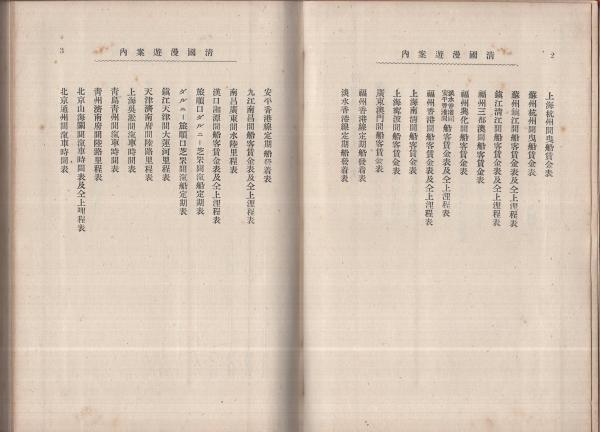 清國漫遊案內
2
上海杭州間曳船賃金表
蘇州杭州間曳船賃金表
蘇州鎮江間船客賃金表及仝上浬程表
鎮江清江間船客賃金表及仝上浬程表
福州三都澳間船客賃金表
福州興化間船客賃金表
淡水香港間
安平香港間
船客賃金表及仝上浬程表
福州香港間船客賃金表及仝上浬程表
上海南清間船客賃金表
上海寗波間船客賃金表
廣東澳門間船客賃金表
福州香港線定期船發着表
淡水香港線定期船發着表
清國漫遊案內
3
安平香港線定期船發着表
九江南昌間船客賃金表及仝上浬程表
南昌廣東間水陸里程表
漢口湘潭間船客賃金表及仝上浬程表
旅順口ダルニー芝罘間滊船定期表
ダルニー旅順口芝罘間滊船定期表
鎮江天津間大運河里程表
天津濟南府間陸路里程表
上海吳淞間滊車時間表
青島青州間滊車時間表
青州濟南府間陸路里程表
北京山海關間滊車時間表及仝上哩程表
北京通州間滊車時間表